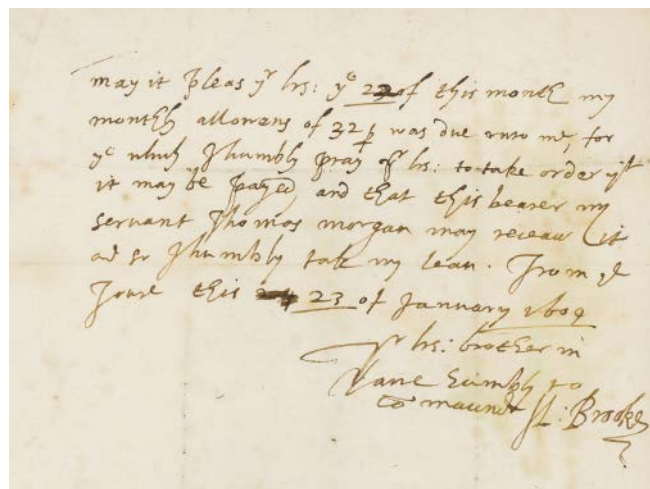 may it pleas yr lrs: ye 22 of this month my
month allowens of 32 p was due unto me, for
ye which I humbly pray yr lrs: to take order yt
it may be payed, and that this bearer my
servant Thomas morgan may receav it
ad so I humbly tak my leav. From ye
Towre this 23 of January 1609
yr lrs: brother in
lawe humbly to
comaund H: Brooke